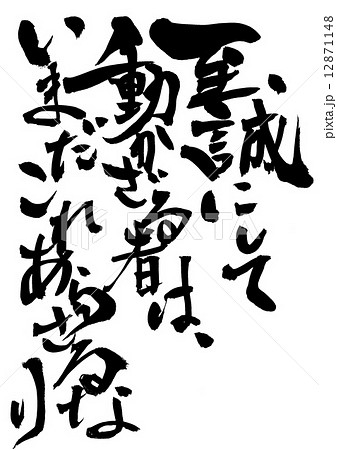 至誠にして
動かざる者は、
いまだこれあらざるな
り
pixta.jp - 12871148